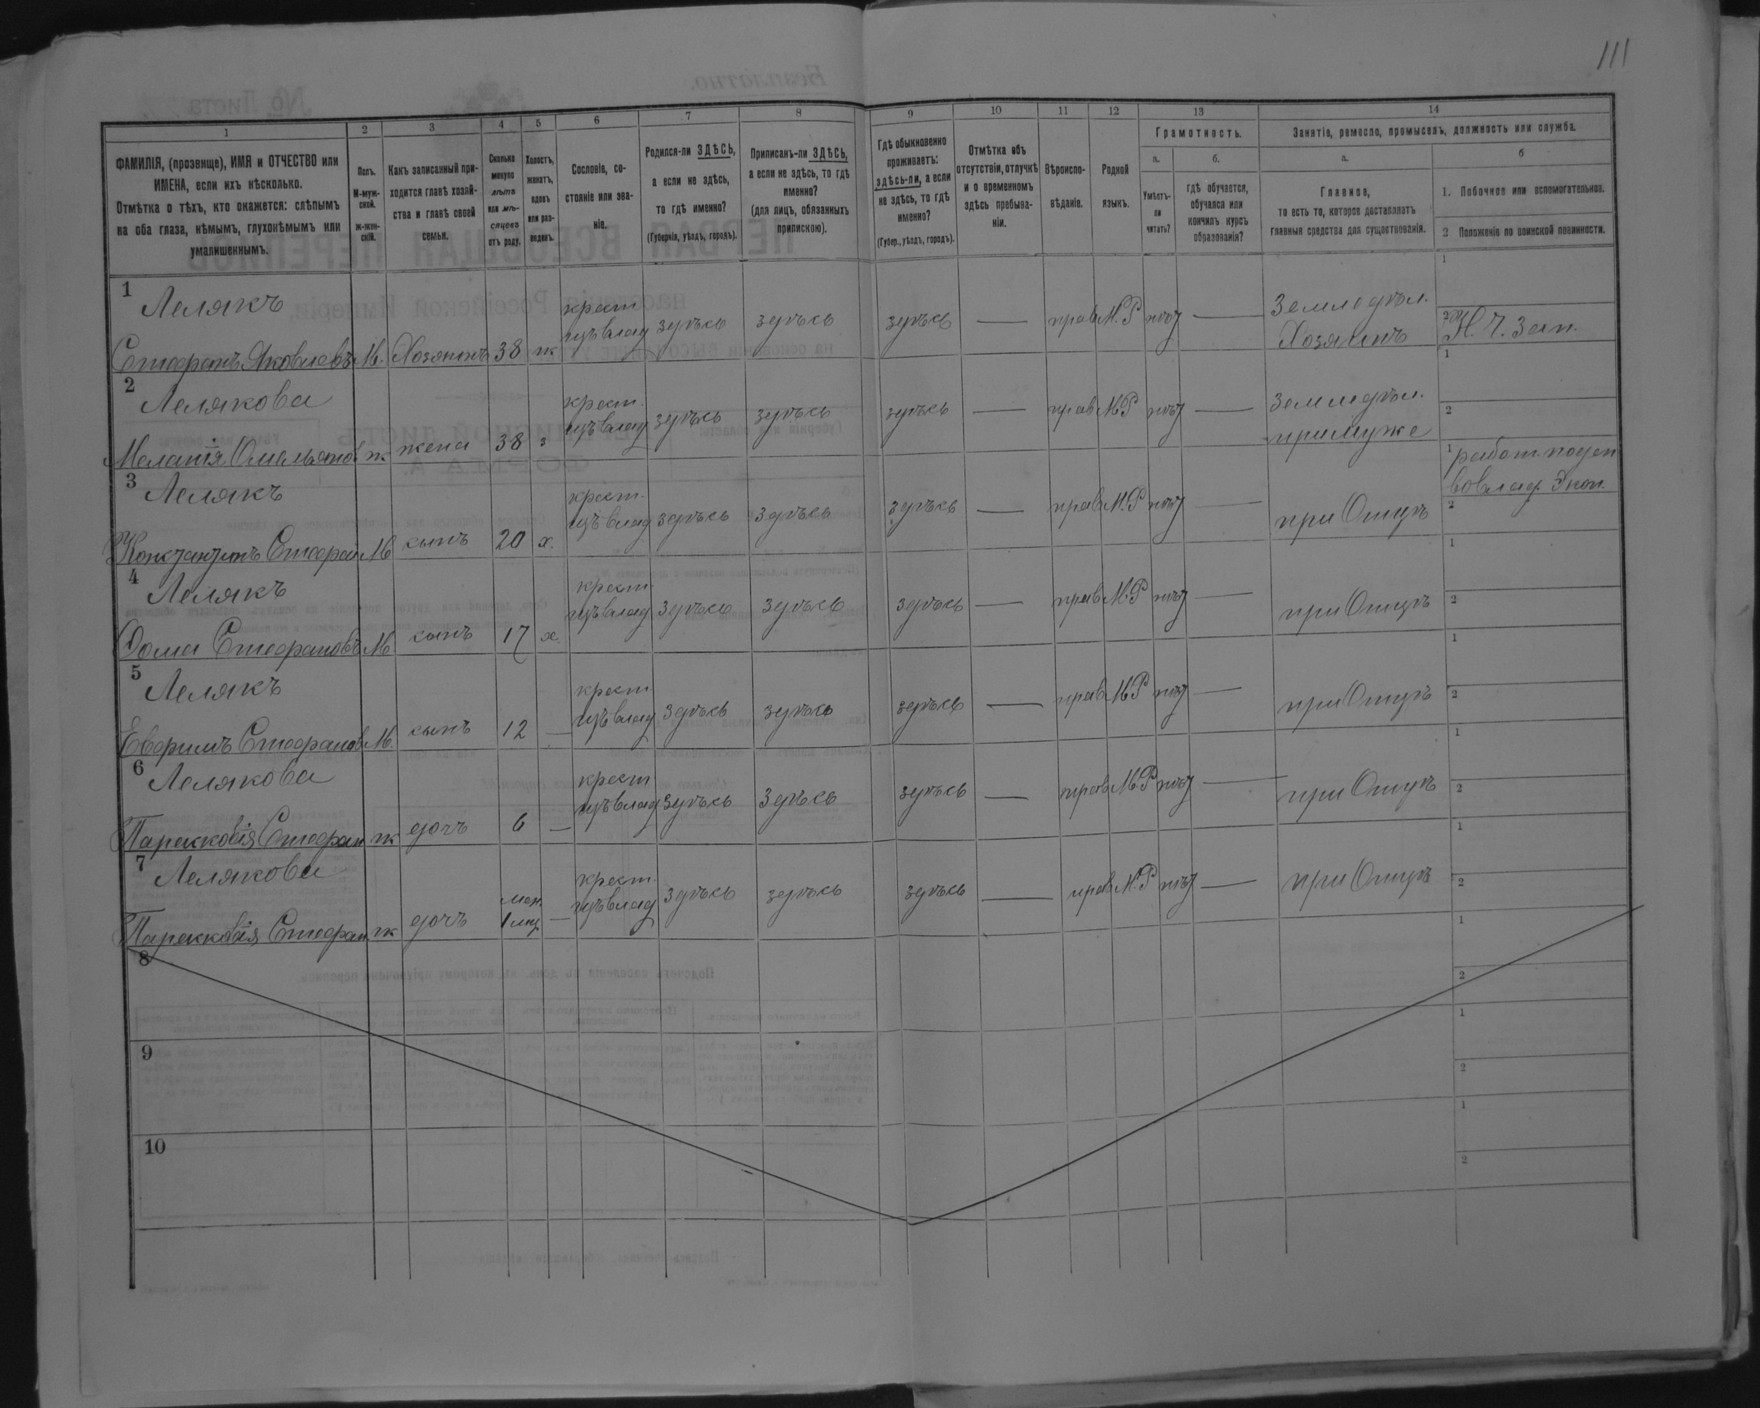 111
1 2 3 4 5 6 7 8 9 10 11 12 13 14
ФАМИЛІЯ, (прозвище), ИМЯ и ОТЧЕСТВО или ИМЕНА, если ихъ нѣсколько.
Отмѣтка о тѣхъ, кто окажется: слѣпымъ на оба глаза, нѣмымъ, глухонѣмымъ или умалишеннымъ.
Полъ.
М-муж-ской.
Ж-жен-скій.
Какъ записанный при-ходится главѣ хозяй-ства и главѣ своей семьи.
Сколько минуло лѣтъ или мѣ-сяцевъ отъ роду.
Холостъ, женатъ, вдовъ или раз-веденъ.
Сословіе, со-стояніе или зва-ніе.
Родился-ли ЗДѢСЬ, а если не здѣсь, то гдѣ именно?
(Губернія, уѣздъ, городъ).
Приписанъ-ли ЗДѢСЬ, а если не здѣсь, то гдѣ именно?
(для лицъ, обязанныхъ припискою).
Гдѣ обыкновенно проживаетъ: здѣсь-ли, а если не здѣсь, то гдѣ именно?
(Губер., уѣздъ, городъ).
Отмѣтка объ отсутствіи, отлучкѣ и о временномъ здѣсь пребыва-ніи.
Вѣроиспо-вѣданіе.
Родной языкъ.
Грамотность.
а.
Умѣетъ-ли читать?
б.
гдѣ обучается, обучался или кончилъ курсъ образованія?
Занятіе, ремесло, промыселъ, должность или служба.
а.
Главное,
то есть то, которое доставляетъ главныя средства для существованія.
б
1. Побочное или вспомогательное.
2 Положеніе по воинской повинности.
1 Лелякъ
Стефанъ Яковлевъ М. Хозяинъ 38 ж крест. здѣсь здѣсь здѣсь — прав М.Р нѣт — Земледѣл. Хозяинъ 1 2 Н. Ч. Зап.
2 Лелякова
Меланія Омельянов ж жена 38 з крест. здѣсь здѣсь здѣсь — прав М.Р нѣт — Земледѣл. при Муже 1 2
3 Лелякъ
Константинъ Стефан М сынъ 20 х. крест. здѣсь здѣсь здѣсь — прав М.Р нѣт — при Отцѣ 1 2
4 Лелякъ
Фома Стефановъ М сынъ 17 х. крест. здѣсь здѣсь здѣсь — прав М.Р нѣт — при Отцѣ 1 2
5 Лелякъ
Евфимъ Стефанов М. сынъ 12 — крест. здѣсь здѣсь здѣсь — прав М.Р нѣт — при Отцѣ 1 2
6 Лелякова
Парасковія Стефан ж дочъ 6 — крест. здѣсь здѣсь здѣсь — прав М.Р нѣт — при Отцѣ 1 2
7 Лелякова
Парасковія Стефан ж дочъ 1 мѣц. — крест. здѣсь здѣсь здѣсь — прав М.Р нѣт — при Отцѣ 1 2
8 1 2
9 1 2
10 1 2